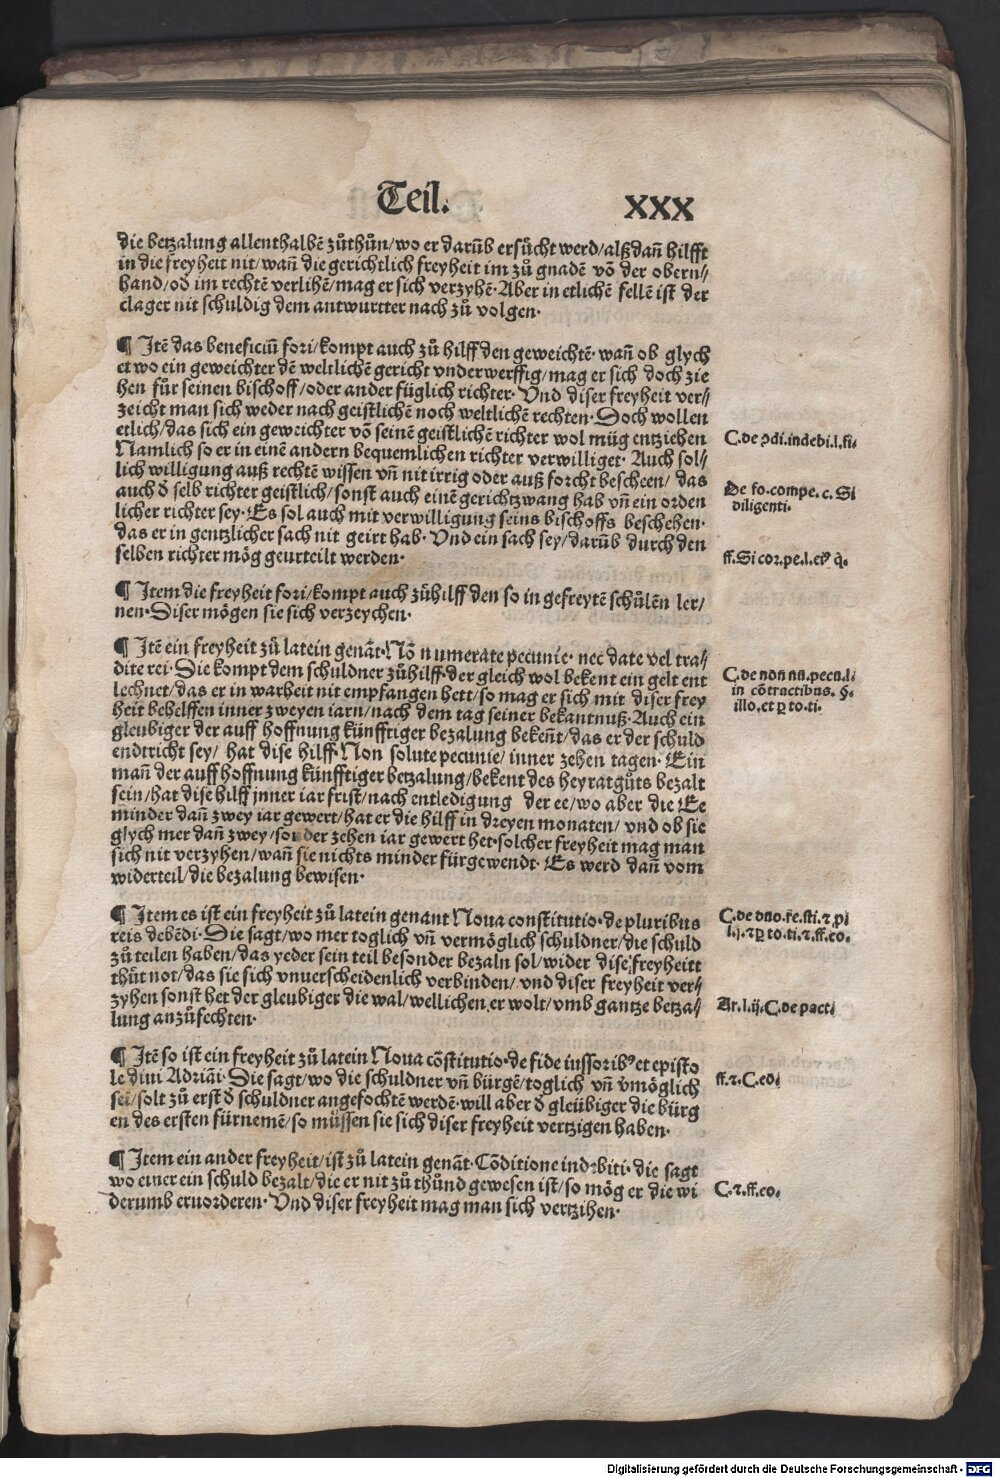 Teil. XXX
die betzalung allenthalbē zůthůn/wo er darūb ersůcht werd/alßdañ hilfft
in die freyheit nit/wañ die gerichtlich freyheit im zů gnadē vō der obern//
hand/od im rechtē verlihē/mag er sich verzyhē· Aber in etlichē fellē ist der
clager nit schuldig dem antwurtter nach zů volgen·
¶ Itē das beneficiū fori/kompt auch zů hilff den geweichtē· wañ ob glych
et wo ein geweichter dē weltlichē gericht vnderwerffig/mag er sich doch zie
hen für seinen bischoff/oder ander füglich richter· Vnd diser freyheit ver//
zeicht man sich weder nach geistlichē noch weltlichē rechten· Doch wollen
etlich/das sich ein geweichter vō seinē geistlichē richter wol müg entziehen
Namlich so er in einē andern bequemlichen richter verwilliget· Auch sol//
lich willigung auß rechtē wissen vñ nit irrig oder auß forcht bescheen/ das
auch d̄ selb richter geistlich/sonst auch einē gerichtzwang hab vñ ein orden
licher richter sey· Es sol auch mit verwilligung seins bischoffs beschehen·
das er in gentzlicher sach nit geirt hab· Vnd ein sach sey/darūb durch den
selben richter mög geurteilt werden·
C. de ꝯdi. indebi. l. fi.
De fo. compe. c. Si
diligenti.
ff. Si cor. pe. l. eiꝰ q̄.
¶ Item die freyheit fori/kompt auch zůhilff den so in gefreytē schůlēn ler/
nen· Diser mögen sie sich verzeychen·
¶ Itē ein freyheit zů latein genāt· Nō numerate pecunie· nec date vel tra//
dite rei· Die kompt dem schuldner zůhilff· der gleich wol bekent ein gelt ent
lechnet/das er in warheit nit empfangen hett/so mag er sich mit diser frey
heit behelffen inner zweyen iarn/nach dem tag seiner bekantnuß· Auch ein
gleubiger der auff hoffnung künfftiger bezalung bekeñt/das er der schuld
endtricht sey/ hat dise hilff· Non solute pecunie/ inner zehen tagen· Ein
mañ der auff hoffnung künfftiger betzalung/bekent des heyratgůts bezalt
sein/hat dise hilff jnner iar frist/nach entledigung der ee/wo aber die Ee
minder dañ zwey iar gewert/hat er die hilff in dreyen monaten/ vnd ob sie
glych mer dañ zwey/sonder zehen iar gewert het· solcher freyheit mag man
sich nit verzyhen/wañ sie nichts minder fürgewendt· Es werd dañ vom
widerteil/die bezalung bewisen·
C. de non nū. pecu. l.
in cōtractibus. §.
illo. et ꝑ to. ti.
¶ Item es ist ein freyheit zů latein genant Noua constitutio· de pluribus
reis debēdi· Die sagt/wo mer toglich vñ vermöglich schuldner/die schuld
zů teilen haben/das yeder sein teil besonder bezaln sol/wider dise freyheitt
thůt not/das sie sich vnuerscheidenlich verbinden/ vnd diser freyheit ver//
zyhen sonst het der gleubiger die wal/wellichen er wolt/vmb gantze betza//
lung anzůfechten·
C. de duo. re. sti. ⁊ ꝓi
l. ij. ⁊ ꝑ to. ti. ⁊. ff. eo.
Ar. l. ij. C. de pact.
¶ Itē so ist ein freyheit zů latein Noua cōstitutio· de fide iussoribꝰ et episto
le diui Adriāi· Die sagt/wo die schuldner vñ bürgē/toglich vñ v̄möglich
sei/solt zů erst d̄ schuldner angefochtē werdē· will aber d̄ gleübiger die bürg
en des ersten fürnemē/so müssen sie sich diser freyheit vertzigen haben·
ff. ⁊. C. eo.
¶ Item ein ander freyheit/ist zů latein genāt· Cōditione indebiti· die sagt
wo einer ein schuld bezalt/die er nit zů thůnd gewesen ist/so mög er die wi
derumb eruorderen· Vnd diser freyheit mag man sich vertzihen·
C. ⁊. ff. eo.
Digitalisierung gefördert durch die Deutsche Forschungsgemeinschaft - DFG